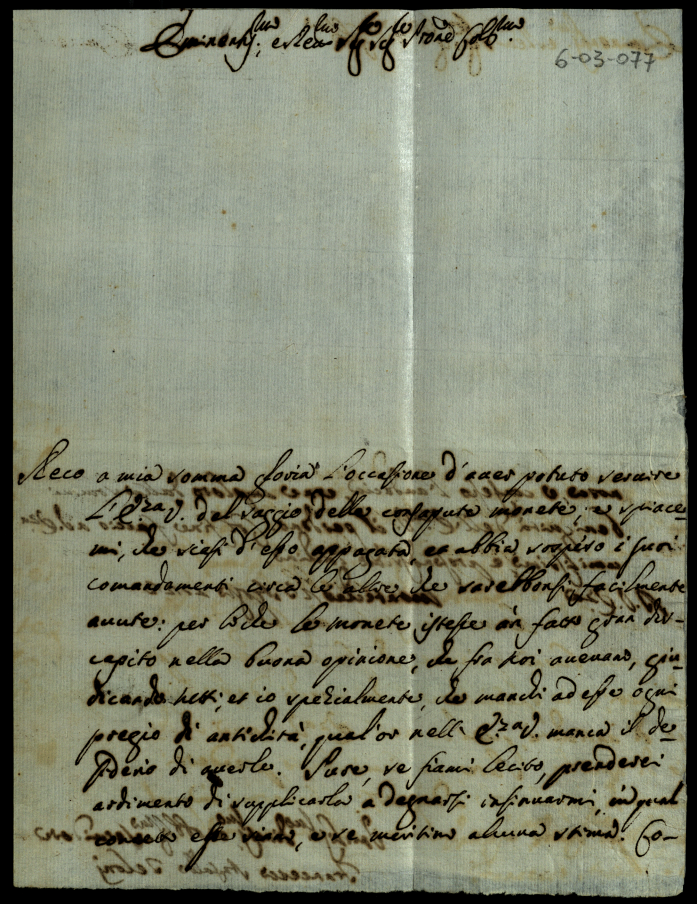 Eminent.mo, e Rev.mo Sig.r Sig.r Pron.e Col.mo
6-03-077
Reco a mia somma gloria l'occasione d'aver potuto servire
l'E.za V. del saggio delle consapute monete, e spiace-
mi, che siasi d'esso appagata, et abbia sospeso i suoi
comandamenti circa le altre che sarebbonsi facilmente
avute: per lo che le monete istesse àn fatto gran dis-
capito nella buona opinione, che fra noi avevano, giu-
dicando tutti, et io spezialmente, che manchi ad esse ogni
pregio di antichità, qual'or nell' E.za V. manca il de-
siderio di averle. Pure, se siami lecito, prenderei
ardimento di supplicarla a degnarsi insinuarmi, in qual
conto esse siano, e se meritino alcuna stima. Co-
Francesco